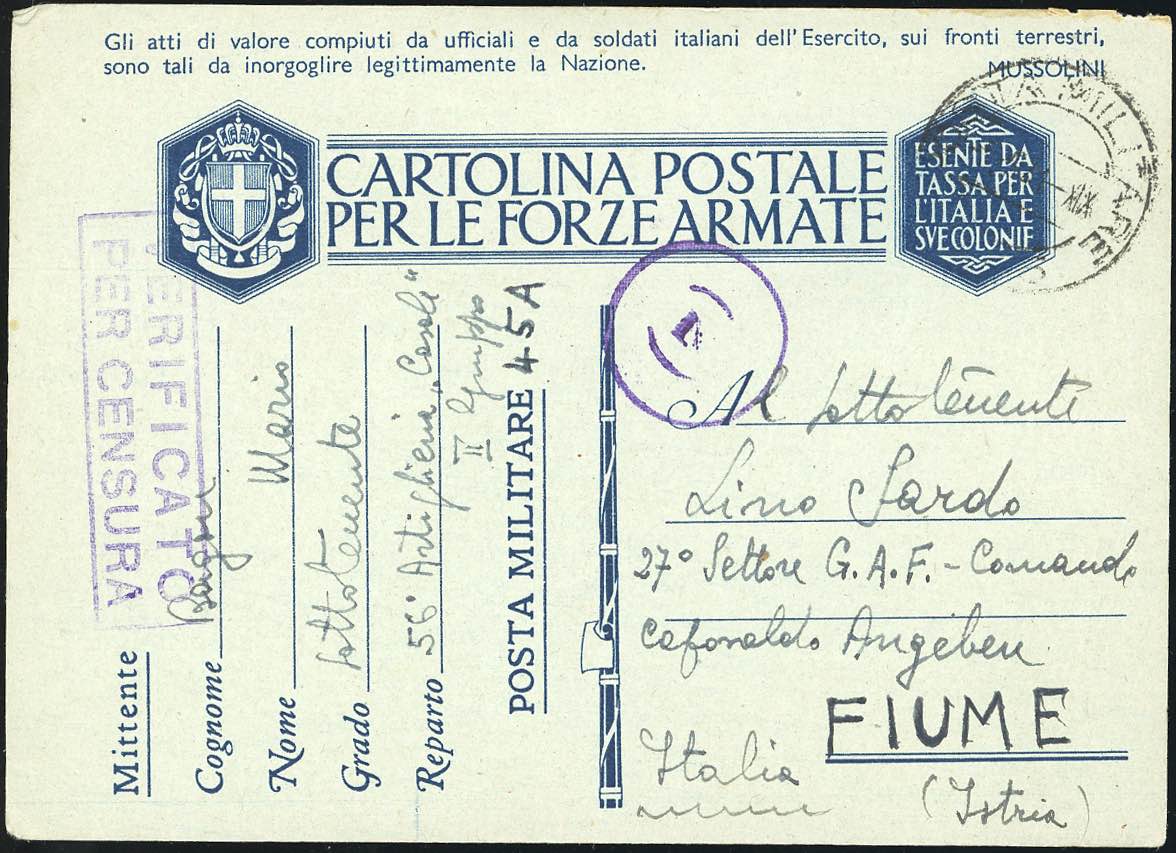 Gli atti di valore compiuti da ufficiali e da soldati italiani dell'Esercito, sui fronti terrestri,
sono tali da inorgoglire legittimamente la Nazione.
MUSSOLINI
CARTOLINA POSTALE
PER LE FORZE ARMATE
ESENTE DA
TASSA PER
L'ITALIA E
SVE COLONIE
MILITARE
XIX
VERIFICATO
PER CENSURA
Mittente
Cognome
Nome Mario
Grado sottotenente
Reparto 56° Artiglieria "Casale"
II Gruppo
POSTA MILITARE 45A
1
Al sottotenente
Lino Sardo
27° Settore G.A.F. - Comando
Caposaldo Angeben
FIUME
Italia
(Istria)